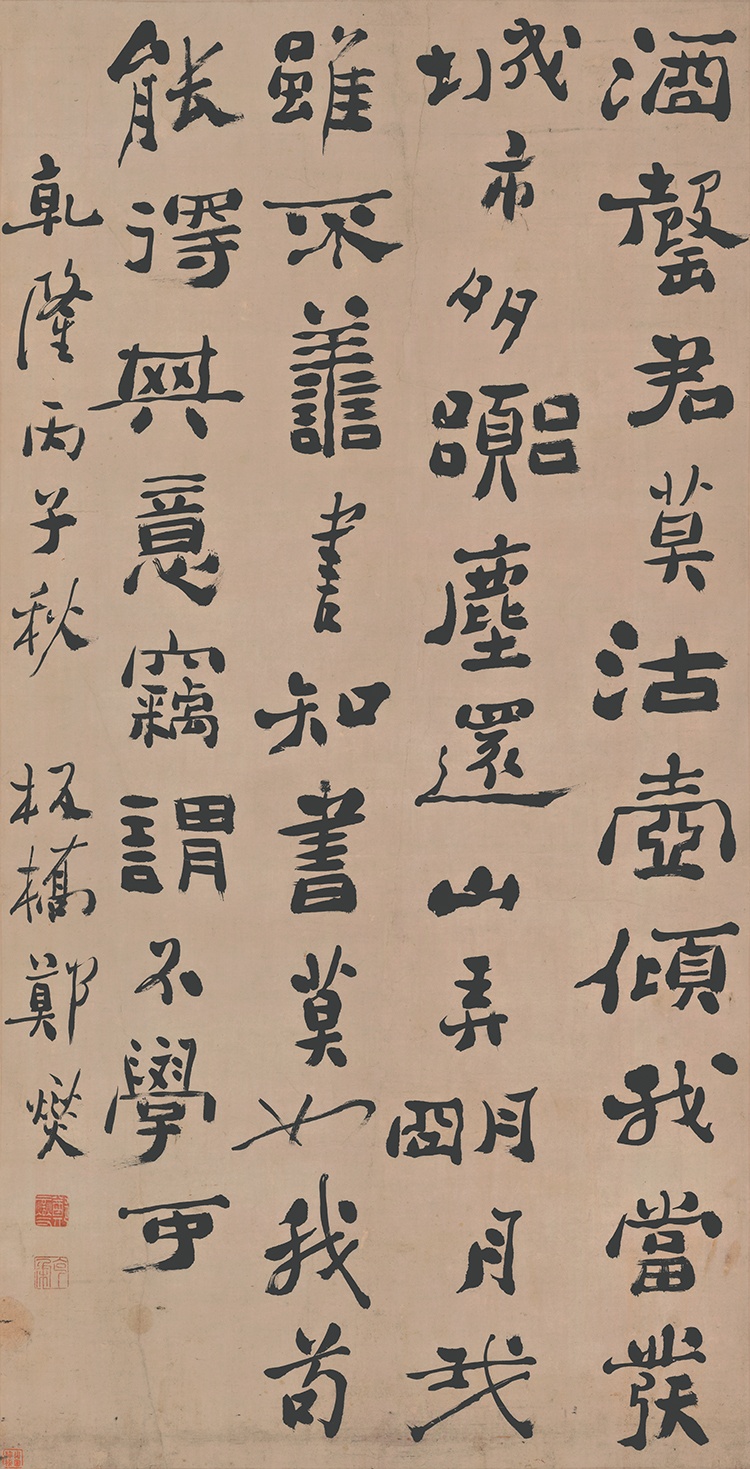 酒罄君莫沽壺傾我當發
城市多囂塵還山弄明月我
雖不善書知書莫如我苟
能得其意竊謂不學可
乾隆丙子秋 板橋鄭燮